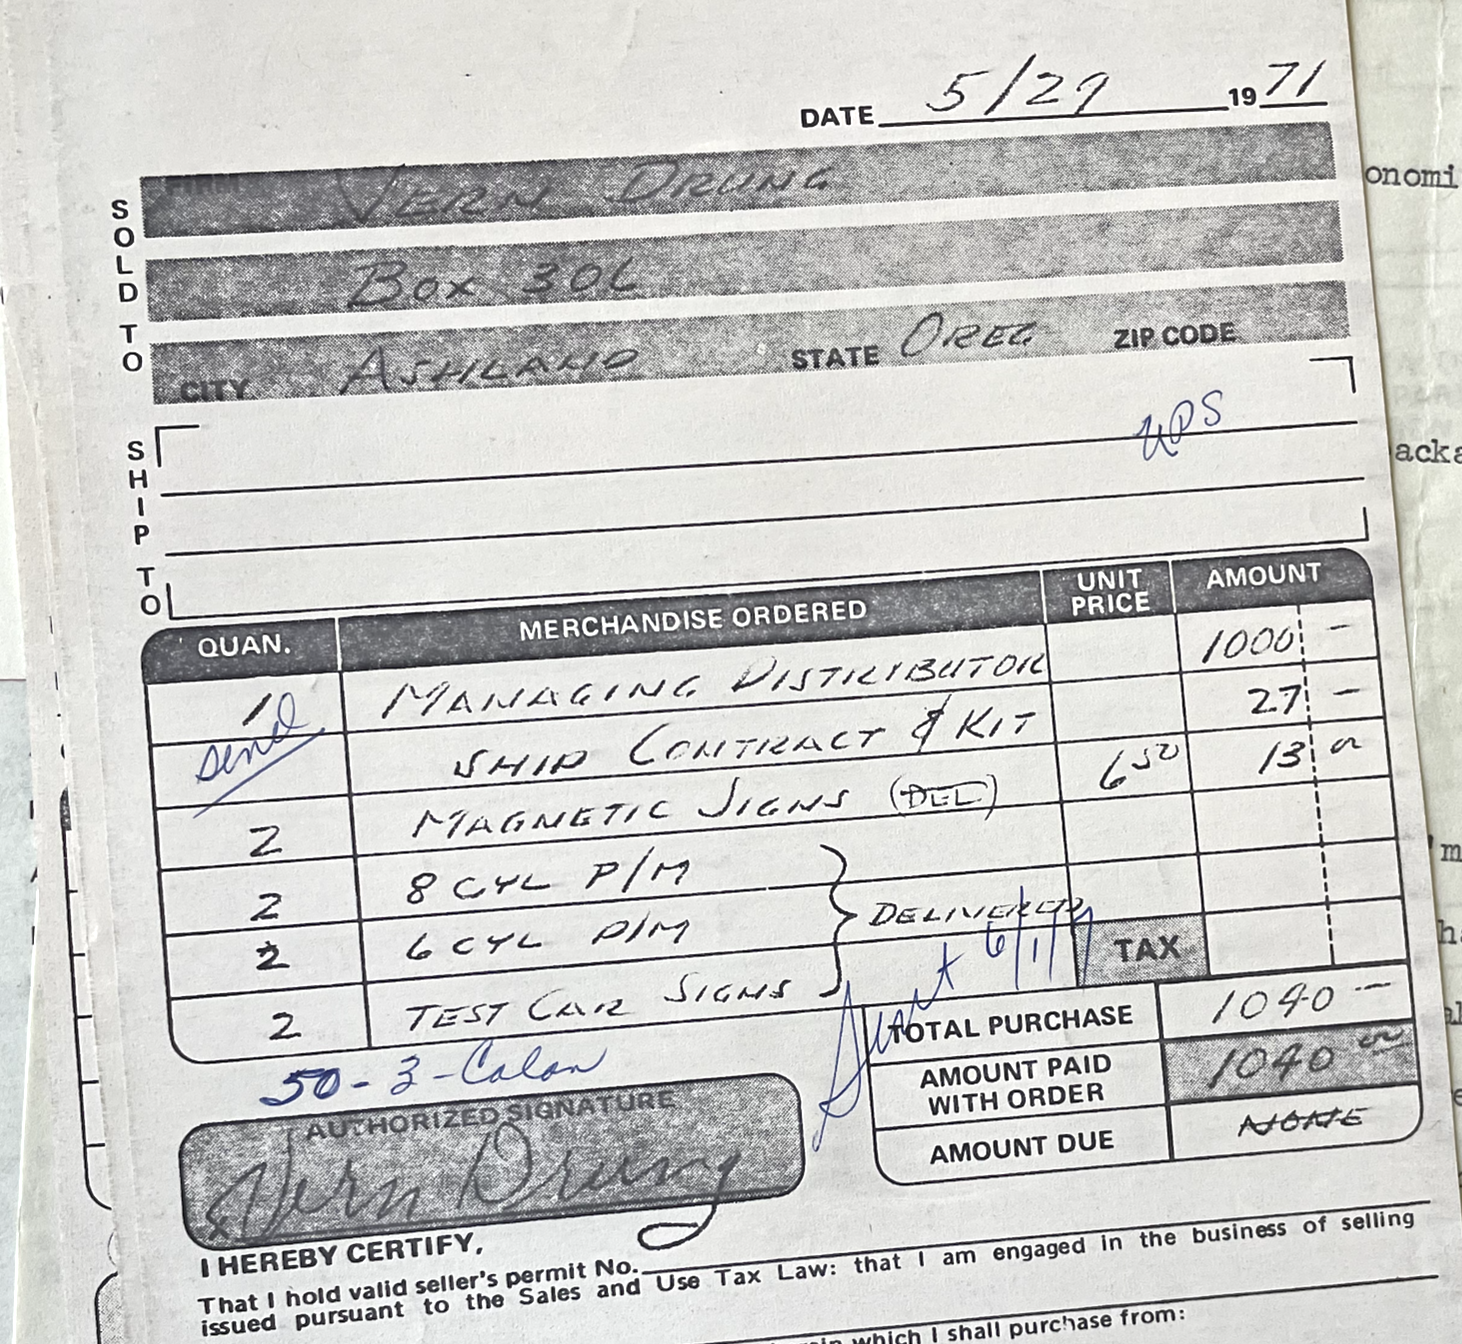 DATE 5/29 1971
SOLD TO
FIRM VERN DRUNG
BOX 306
CITY ASHLAND STATE OREG ZIP CODE
SHIP TO
UPS
QUAN. MERCHANDISE ORDERED UNIT PRICE AMOUNT
1 MANAGING DISTRIBUTOR 1000 –
send SHIP CONTRACT & KIT 27 –
2 MAGNETIC SIGNS (DEL) 6 50 13
2 8 CYL P/M
2 6 CYL P/M DELIVERED
2 TEST CAR SIGNS
6/1/7
TAX
TOTAL PURCHASE 1040 –
50-3-Calan
AMOUNT PAID WITH ORDER 1040
AMOUNT DUE NONE
AUTHORIZED SIGNATURE
Vern Drung
I HEREBY CERTIFY,
That I hold valid seller's permit No.
issued pursuant to the Sales and Use Tax Law: that I am engaged in the business of selling
which I shall purchase from:
onomi
acka
'm